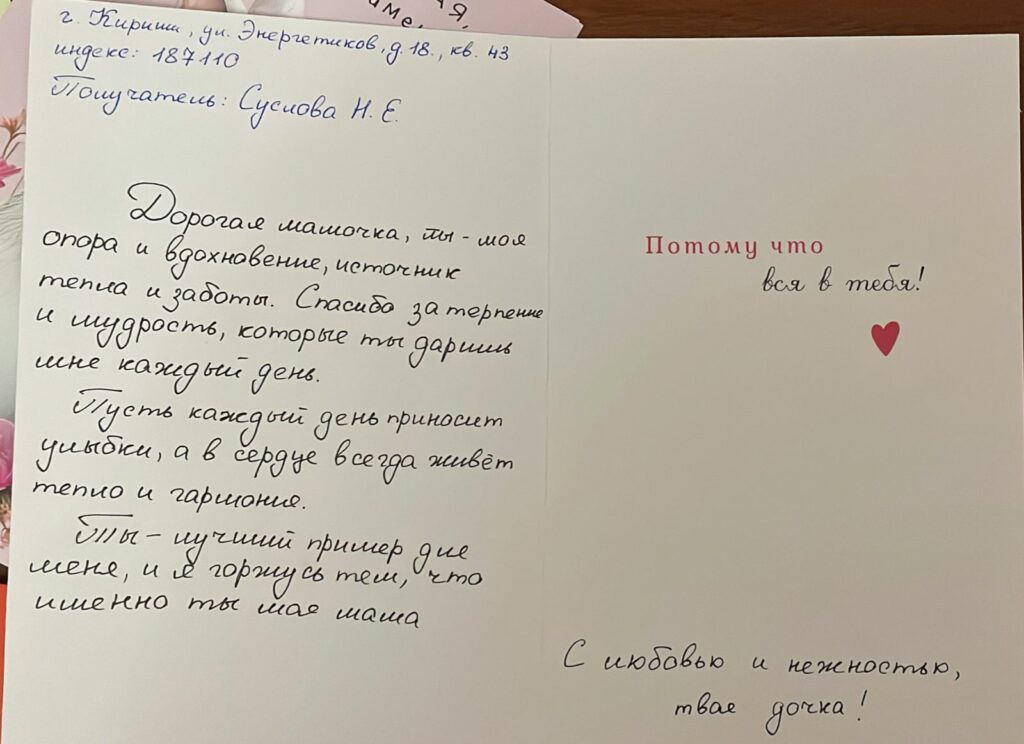 я,
име.
г. Кириши, ул. Энергетиков, д. 18., кв. 43
индекс: 187110
Получатель: Суслова Н. Е.
Дорогая мамочка, ты - моя
опора и вдохновение, источник
тепла и заботы. Спасибо за терпение
и мудрость, которые ты даришь
мне каждый день.
Пусть каждый день приносит
улыбки, а в сердце всегда живёт
тепло и гармония.
Ты - лучший пример для
меня, и я горжусь тем, что
именно ты моя мама
Потому что
вся в тебя!
С любовью и нежностью,
твоя дочка!